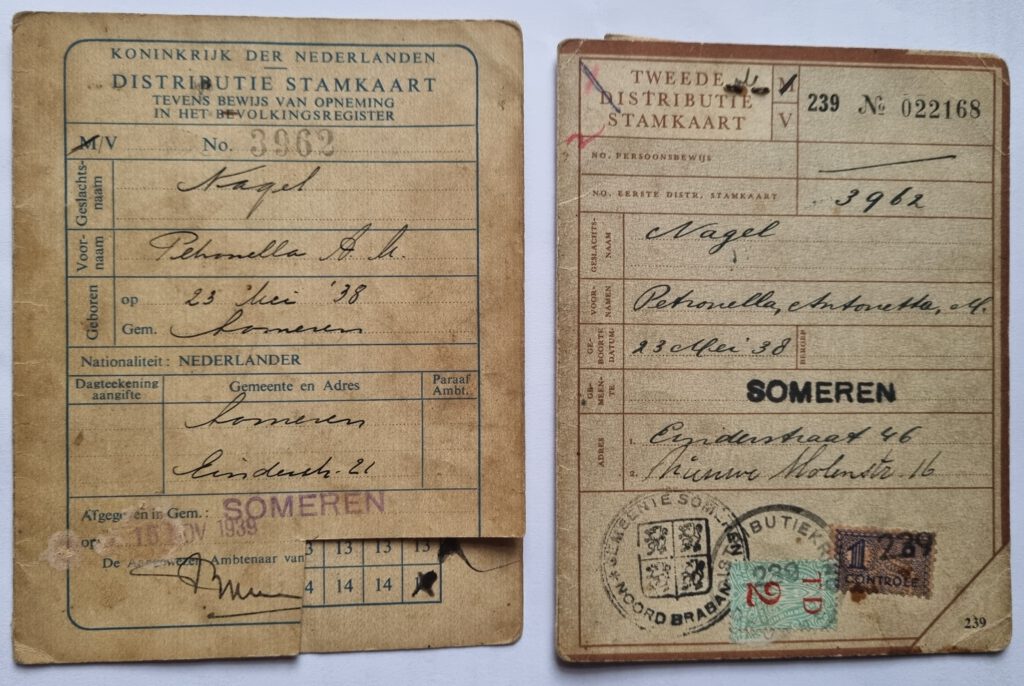 KONINKRIJK DER NEDERLANDEN
DISTRIBUTIE STAMKAART
TEVENS BEWIJS VAN OPNEMING
IN HET BEVOLKINGSREGISTER
M/V No. 3962
Geslachts-
naam
Nagel
Voor-
naam
Petronella A. M.
Geboren
op 23 Mei '38
Gem. Someren
Nationaliteit: NEDERLANDER
Dagteekening
aangifte
Gemeente en Adres
Paraaf
Ambt.
Someren
Einderstr. 21
Afgegeven in Gem.: SOMEREN
op NOV 1939
De Aangewezen Ambtenaar van
3 13 13 13 13
4 14 14 14
TWEEDE
DISTRIBUTIE
STAMKAART
M
V
239 No 022168
NO. PERSOONSBEWIJS
NO. EERSTE DISTR. STAMKAART 3962
GESLACHTS-
NAAM
Nagel
VOOR-
NAMEN
Petronella, Antonetta, M.
GE-
BOORTE
DATUM:
23 Mei 38
BEROEP
GE-
MEEN-
TE
SOMEREN
ADRES
1. Einderstraat 46
2. Nieuwe Molenstr. 16
GEMEENTE SOMEREN
NOORD BRABANT
239
1 D
2
1
CONTROLE
239
239